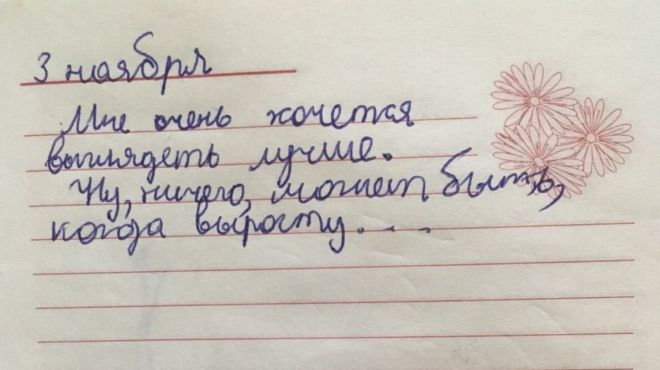 3 ноября
Мне очень хочется
выглядеть лучше.
Ну, ничего, может быть,
когда вырасту....